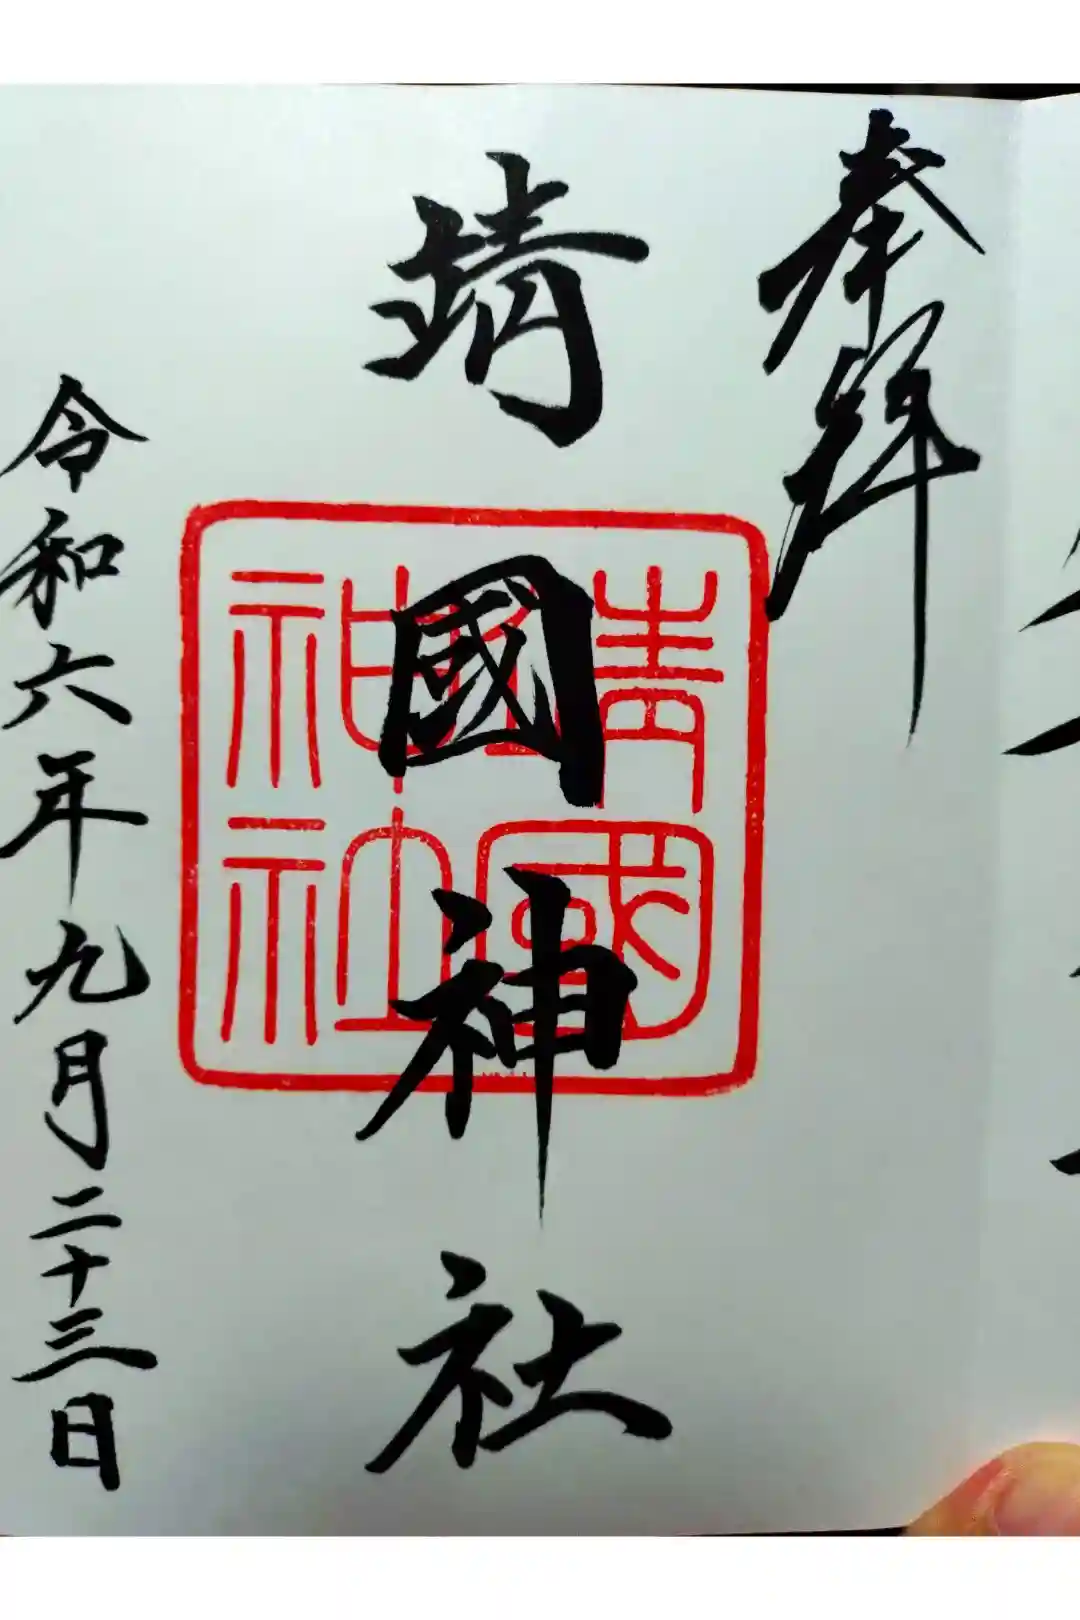 奉拝
靖國神社
靖國
神社
令和六年九月二十三日